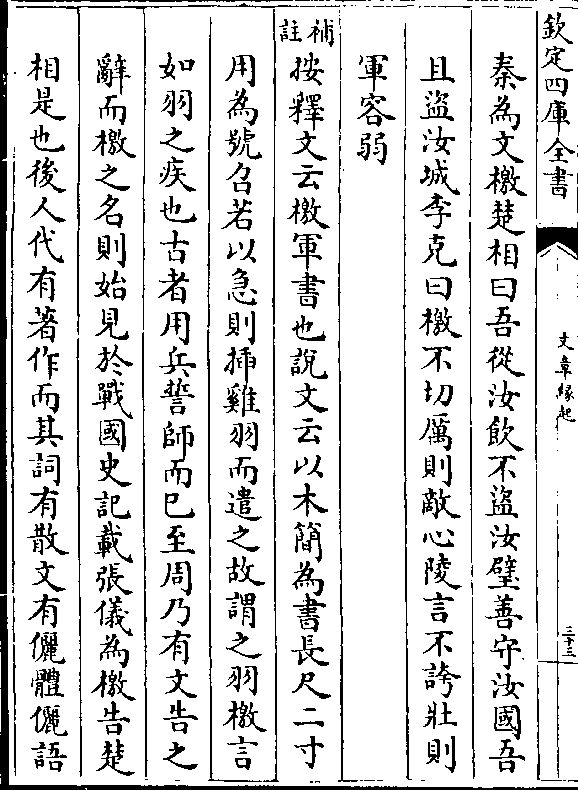 欽定四庫全書
文章緣起
三十三
秦為文檄楚相曰吾從汝飲不盜汝璧善守汝國吾
且盜汝城李克曰檄不切厲則敵心陵言不誇壯則
軍容弱
補註
按釋文云檄軍書也說文云以木簡為書長尺二寸
用為號召若以急則揷雞羽而遣之故謂之羽檄言
如羽之疾也古者用兵誓師而已至周乃有文告之
辭而檄之名則始見於戰國史記載張儀為檄告楚
相是也後人代有著作而其詞有散文有儷體儷語